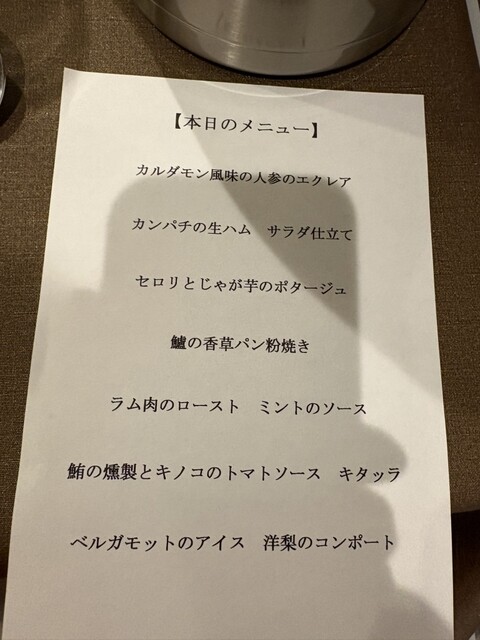 【本日のメニュー】
カルダモン風味の人参のエクレア
カンパチの生ハム　サラダ仕立て
セロリとじゃが芋のポタージュ
鱸の香草パン粉焼き
ラム肉のロースト　ミントのソース
鮪の燻製とキノコのトマトソース　キタッラ
ベルガモットのアイス　洋梨のコンポート